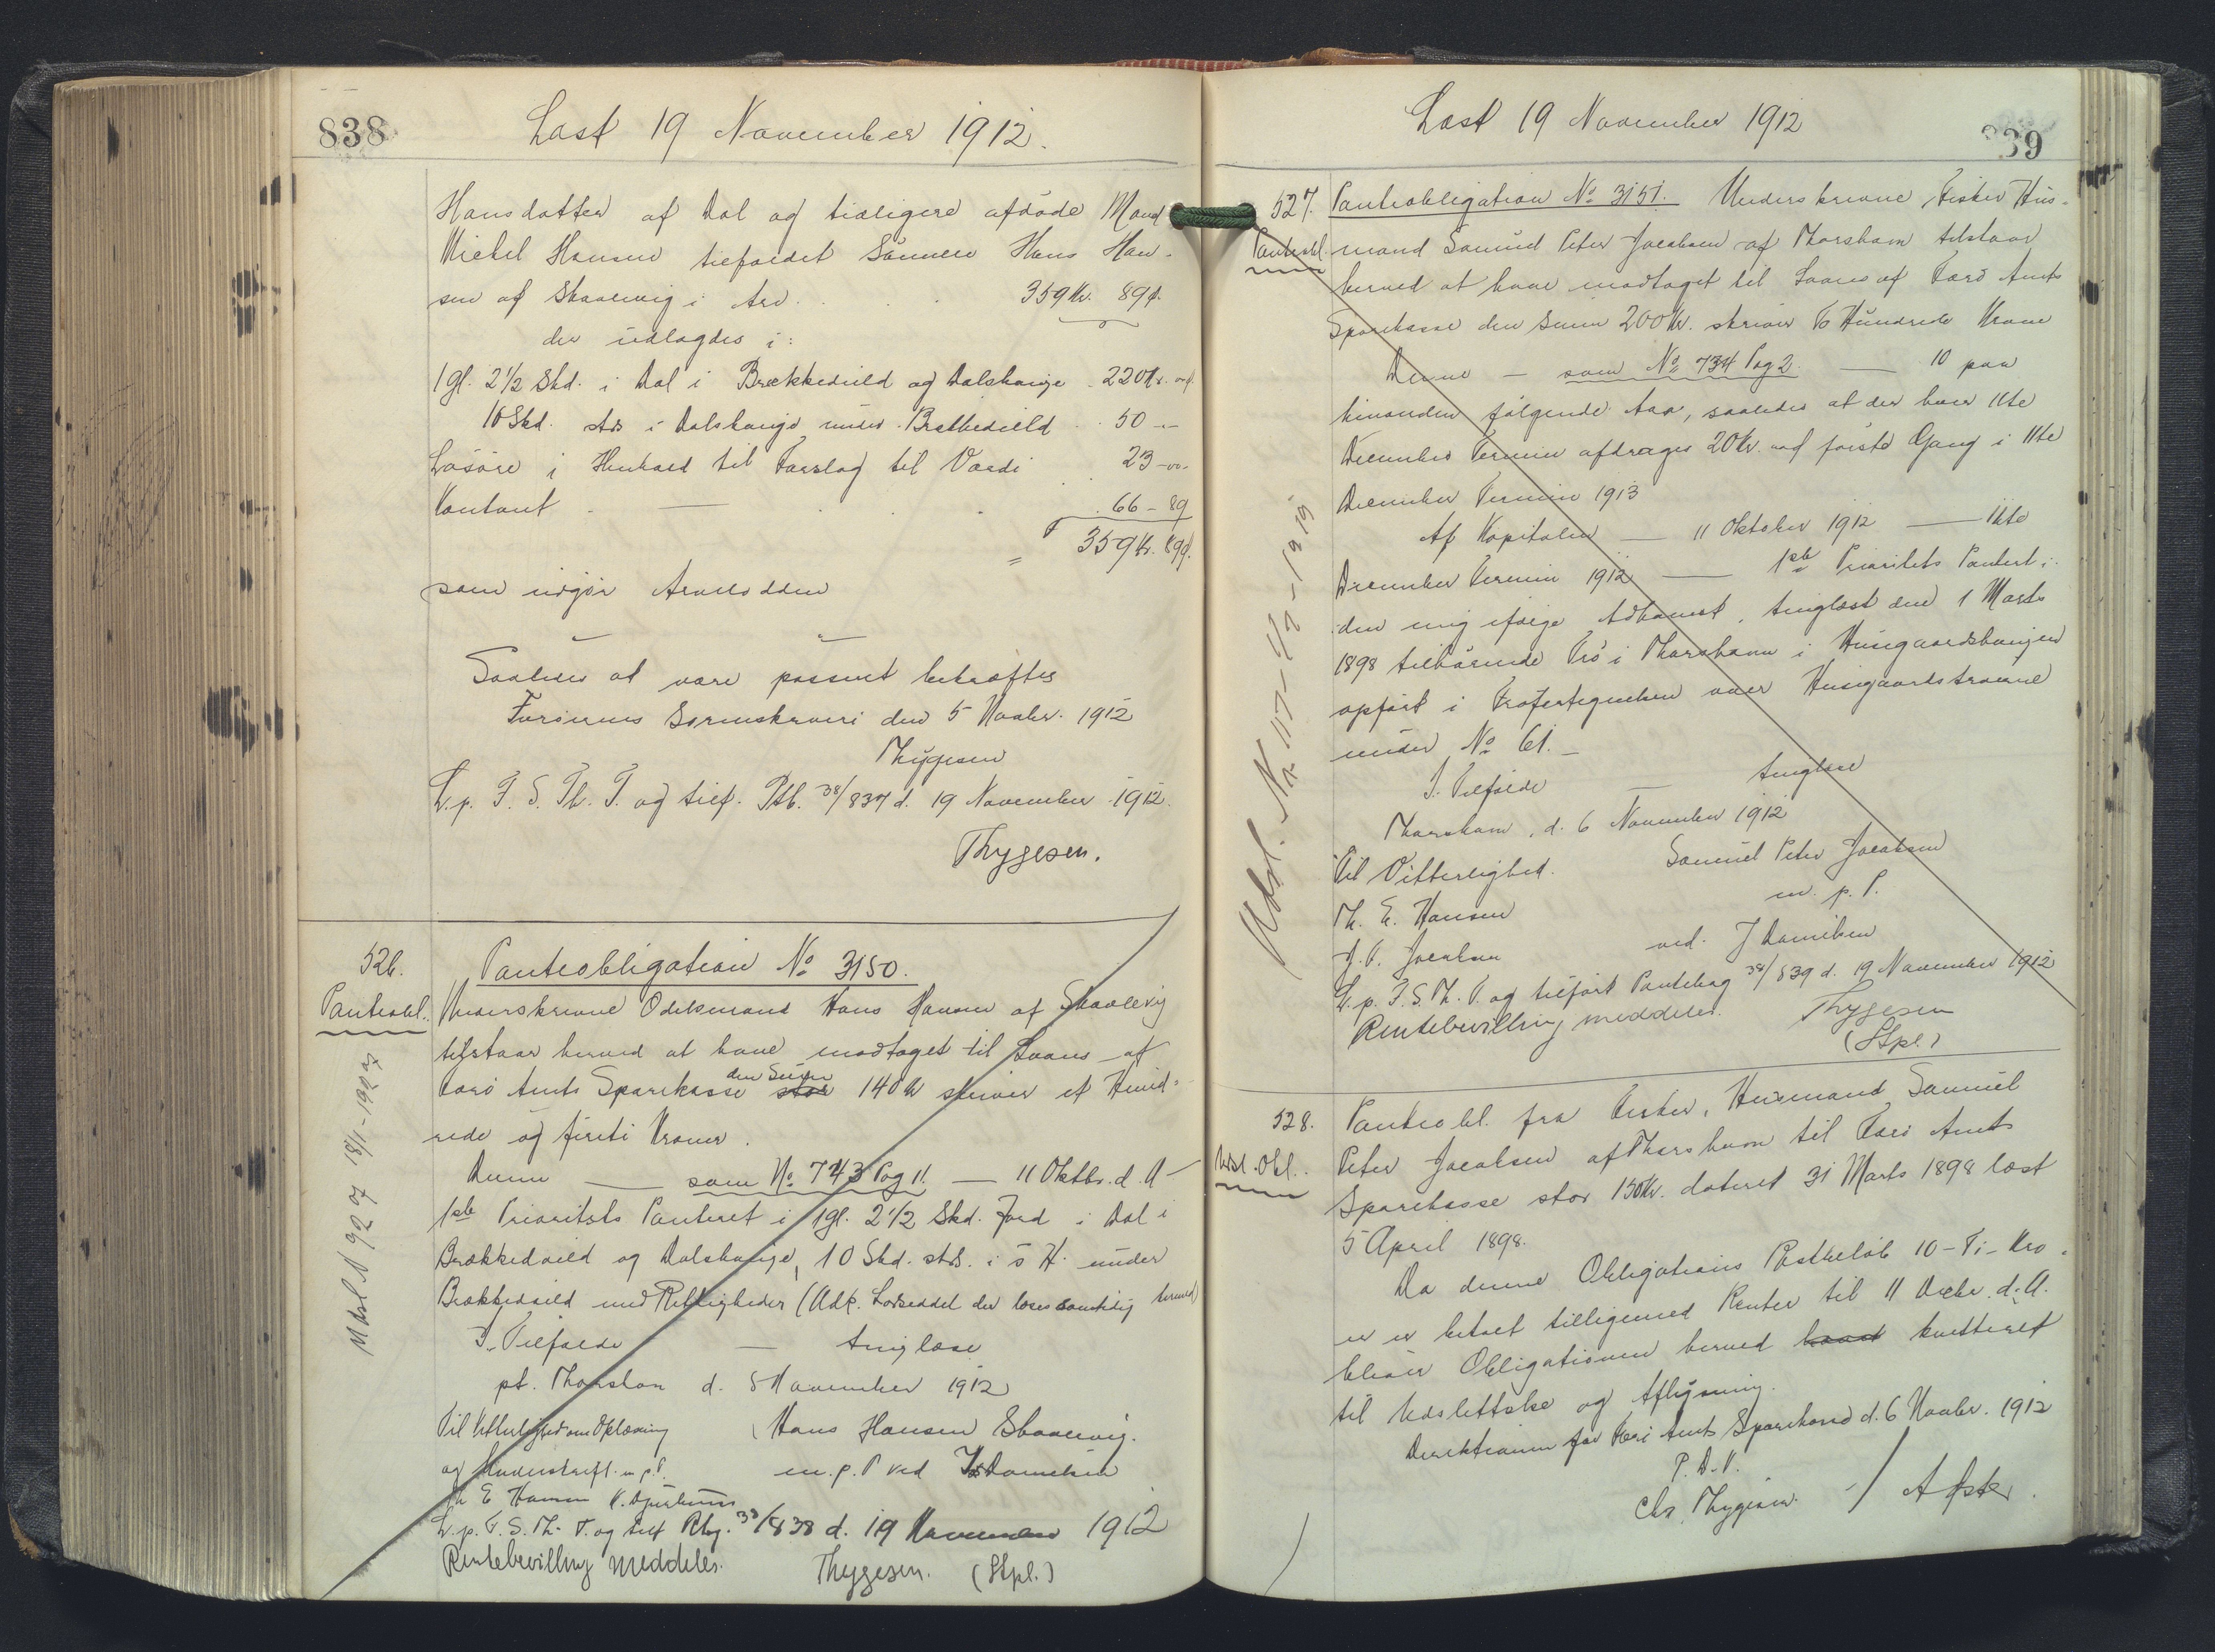 838
Læst 19 November 1912.
Hansdatter af Dal og tidligere afdøde Mand
Michel Hansen tilfaldet Sønnen Hans Han-
sen af Skaalevig i Arv . . . 359 Kr. 89 Ø.
der udlagdes i:
1 gl. 2 1/2 Skd. i Dal i Brekkedeild og Dalshauge 220 Kr.
10 Skd. stb i Dalshauge under Brekkedeild . . 50 -
Løsøre i Henhold til Forslag til Værdi . . 23 - 00 -
Kontant - . . . 66 - 89
= 359 Kr. 89 Ø.
som udgjør Arvelodden
Saaledes at være passeret bekræftes
Færøernes Sorenskriveri den 5 Novbr. 1912
Thygesen
L. p. F. S. Th. T. og tilf. Ptb. 38/837 d. 19 November 1912.
Thygesen.
526.
Panteobl.
Udsl. N 92 07 18/1-1927
Panteobligation No 3150.
Underskrevne Odelsmand Hans Hansen af Skaalevig
tilstaar herved at have modtaget til Laans af
Færø Amts Sparekasse stor den Summa 140 Kr skriver et Hund-
rede og firti Kroner.
Denne — som No. 743 Pag 11. — 11 Oktbr. d. A —
1ste Prioritets Panteret i 1 gl. 2 1/2 Skd. Jord i Dal i
Brekkedeild og Dalshauge, 10 Skd. stb. i s H. under
Brekkedeild med Rettigheder (Adk. Lodseddel der læses samtidig hermed)
I Tilfælde — tinglæse
pt. Thorshavn d. 5 November 1912
Til Vitterlighed om Oplæsning
og Underskrift m. p. P.
Hans Hansen Skaalevig.
m. p. P ved J Danielsen
Th E Hansen
L. p. F. S. Th. T. og tilf Ptbg. 38/838 d. 19 November 1912
Rentebevilling meddeles.
Thygesen. (Stpl.)
Læst 19 November 1912
839
527.
Panteobl.
Panteobligation No 3151. Underskrevne Fisker Hus-
mand Samuel Peter Jacobsen af Thorshavn tilstaar
herved at have modtaget til Laans af Færø Amts
Sparekasse den Sum 200 Kr. skriver To Hundrede Krone
Denne — som No 734 Pag 2. — 10 paa
hinanden følgende Aar, saaledes at der hver 11te
December Termin afdrages 20 Kr. ved første Gang i 11te
December Termin 1913
Af Kapitalen — 11 Oktober 1912 — 11te
December Termin 1912 — 1ste Prioritets Panteret i
den mig ifølge Adkomst, tinglæst den 1 Marts
1898 tilhørende Trø i Thorshavn i Husgaardshaugen
opført i Trøfortegnelsen over Husgaardstrøerne
under No 61. -
I Tilfælde — tinglæse
Thorshavn, d. 6 November 1912
Til Vitterlighed. Samuel Peter Jacobsen
Th. E. Hansen m. p. P.
J. P. Jacobsen ved J Danielsen
L. p. F. S. Th. T. og tilført Pantebog 38/839 d. 19 November 1912
Rentebevilling meddeles. Thygesen
(Stpl.)
528.
Udsl. Obl.
Panteobl. fra Fisker, Husmand Samuel
Peter Jacobsen af Thorshavn til Færø Amts
Sparekasse stor 150 Kr. dateret 31 Marts 1898 læst
5 April 1898.
Da denne Obligations Restbeløb 10 - Ti - Kro-
ner er betalt tilligemed Renter til 11 Decbr. d. A.
bliver Obligationen herved kvitteret
til Udslettelse og Aflysning.
Direktionen for Færø Amts Sparekasse d. 6 Novbr. 1912
P. D. V.
Chr. Thygesen /